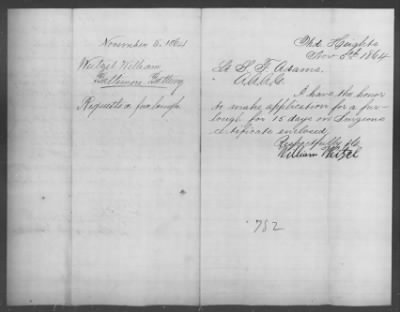 November 5, 1864
Wetzel William
Baltimore Battery
Requests a furlough.
Md. Heights
Nov 5th 1864
Lt S. F. Adams.
A.A.A.G.
I have the honor
to make application for a fur-
lough for 15 days on Surgeons
certificate enclosed.
Respectfully &c
William Wetzel
782